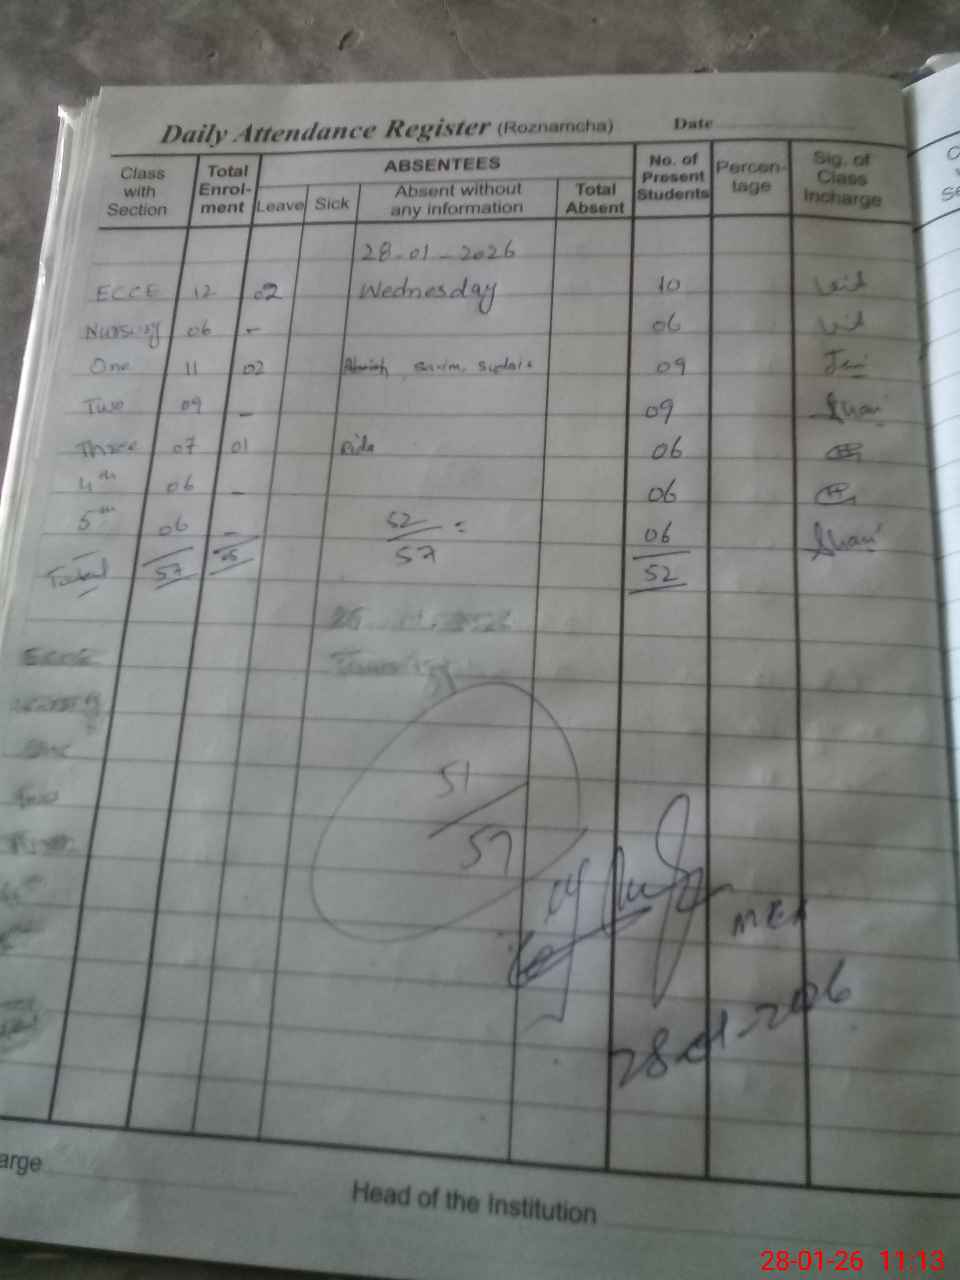 Daily Attendance Register (Roznamcha) Date
Class with Section
Total Enrol-ment
ABSENTEES
Leave
Sick
Absent without any information
Total Absent
No. of Present Students
Percen-tage
Sig. of Class Incharge
28-01-2026
ECCE 12 02 Wednesday 10
Nursury 06 - 06
One 11 02 09
Two 09 - 09
Three 07 01 Rida 06
4th 06 - 06
5th 06 - 52/57 = 06
Total 57 05 52
ECCE
51/57
28-01-2026
arge
Head of the Institution
28-01-26 11:13